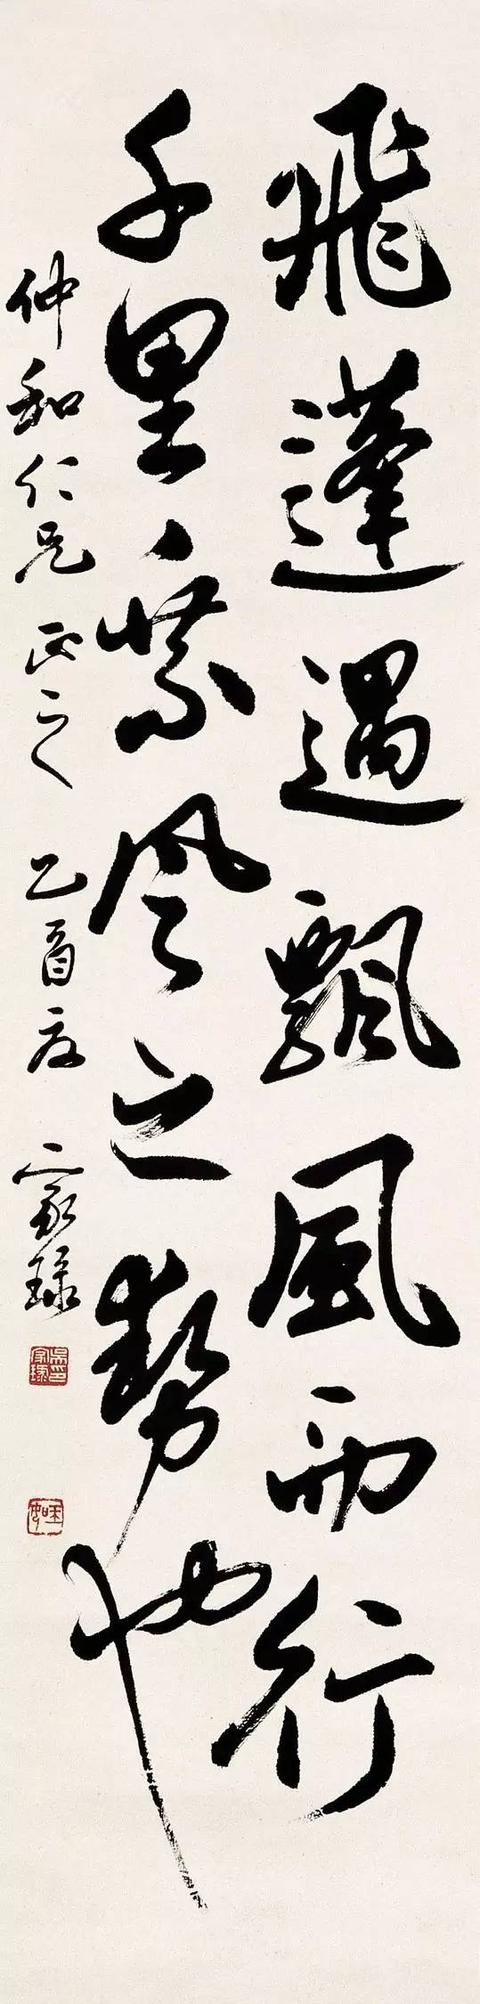 飛蓬遇飄風而行
千里乘風之勢也
仲和仁兄正之 乙酉夏 家琭
吳印家琭